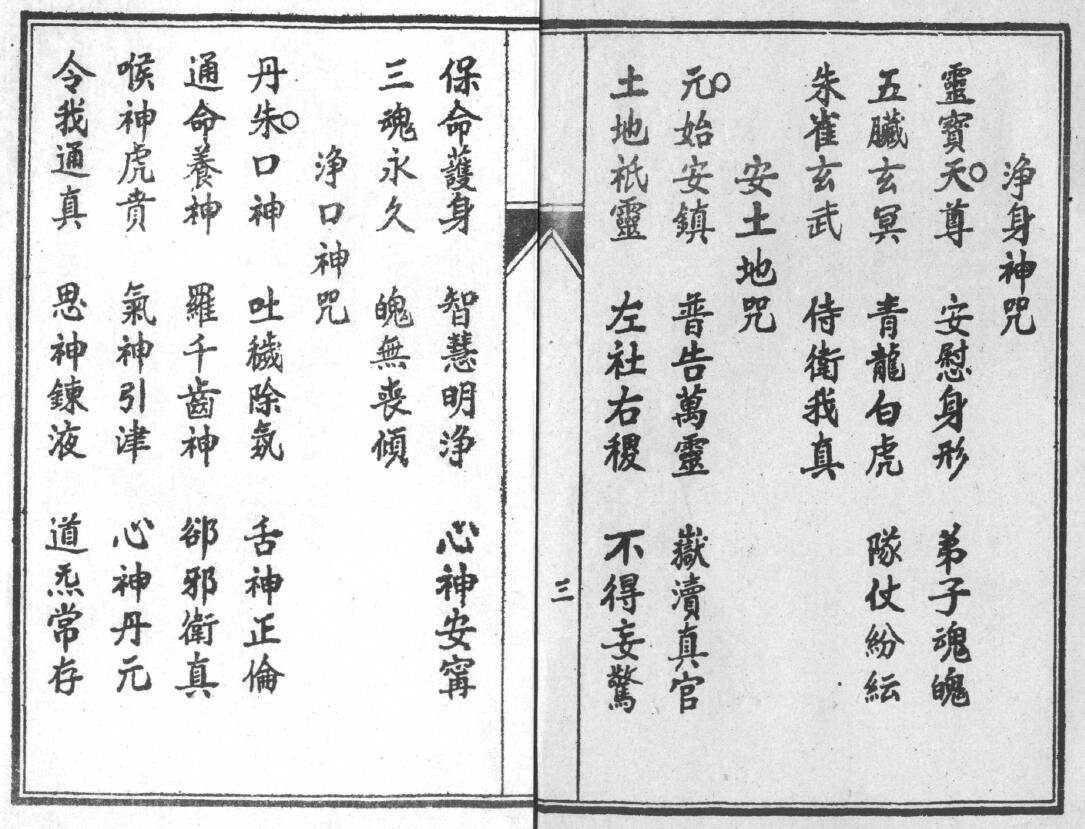 淨身神咒
靈寶天尊 安慰身形 弟子魂魄
五臟玄冥 青龍白虎 隊仗紛紜
朱雀玄武 侍衛我真
安土地咒
元始安鎮 普告萬靈 嶽瀆真官
土地祇靈 左社右稷 不得妄驚
三
保命護身 智慧明淨 心神安寗
三魂永久 魄無喪傾
淨口神咒
丹朱口神 吐穢除氛 舌神正倫
通命養神 羅千齒神 卻邪衛真
喉神虎賁 氣神引津 心神丹元
令我通真 思神鍊液 道炁常存